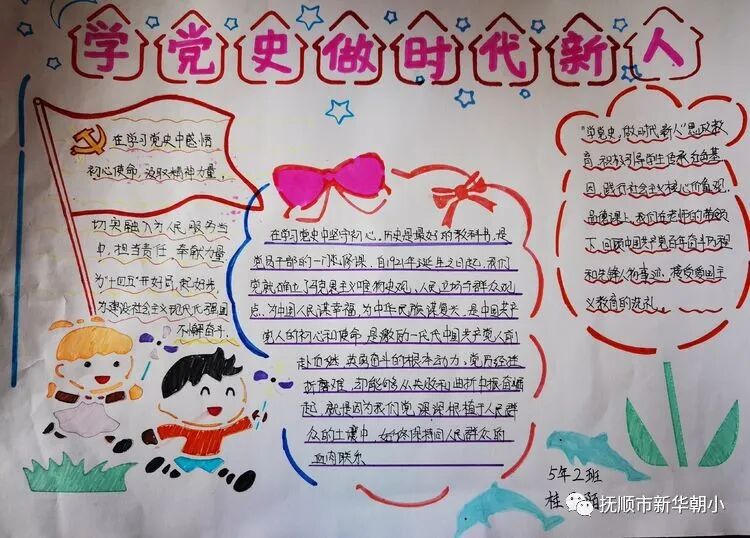 学党史做时代新人
在学习党史中感悟
初心使命，汲取精神力量，
切实融入为人民服务当
中，担当责任，奉献力量
为"十四五"开好局，起好步，
为建设社会主义现代化强国
不懈奋斗。
在学习党史中坚守初心，历史是最好的教科书，是
党员干部的一门必修课。自1921年诞生之日起，我们
党就确立了马克思主义唯物史观、人民立场千群众观
点。为中国人民谋幸福，为中华民族谋复兴，是中国共产
党人的初心和使命，是激励一代代中国共产党人前
赴后继、英勇奋斗的根本动力，党历经
折磨难，却能够从失败和曲折中振奋崛
起，就是因为我们党深深根植于人民群
众的土壤中，始终保持同人民群众的
血肉联系
"学党史，做时代新人"思政教
育，积极引导学生传承红色基
因，践行社会主义核心价值观，
品德课上，我们在老师的带领
下，回顾中国共产党百年奋斗历程
和先锋人物事迹，接受爱国主
义教育的洗礼。
5年2班
桂 陌
抚顺市新华朝小